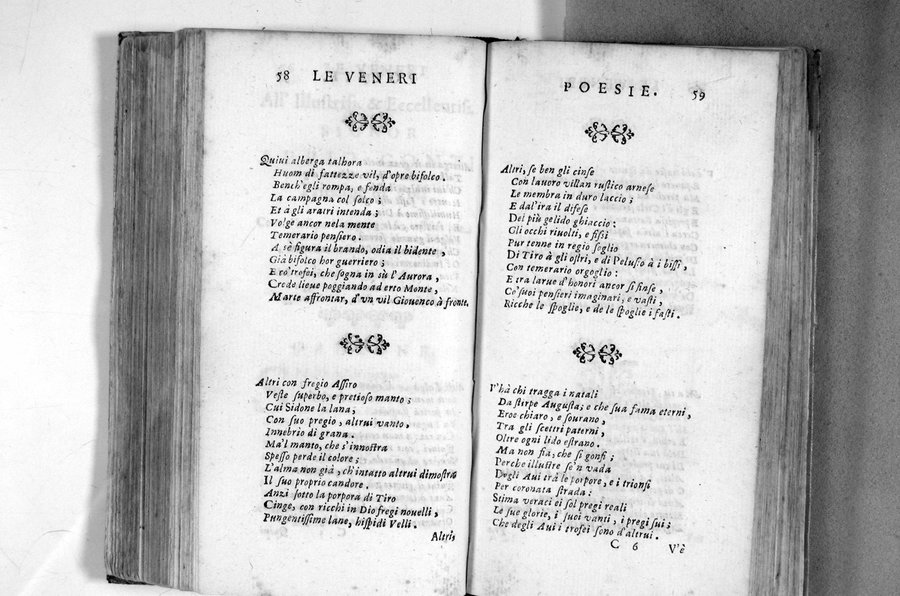 58 LE VENERI
Quiui alberga talhora
Huom di fattezze vil, d'opre bifolco.
Bench'egli rompa, e fenda
La campagna col solco;
Et à gli aratri intenda;
Volge ancor nela mente
Temerario pensiero.
A sè figura il brando, odia il bidente,
Già bifolco hor guerriero;
E co'trofei, che sogna in sù l'Aurora,
Crede lieue poggiando ad erto Monte,
Marte affrontar, d'vn vil Giouenco à fronte.
Altri con fregio Assiro
Veste superbo, e pretioso manto;
Cui Sidone la lana,
Con suo pregio, altrui vanto,
Innebrio di grana.
Ma'l manto, che s'innostra
Spesso perde il colore;
L'alma non già, ch'intatto altrui dimostra
Il suo proprio candore.
Anzi sotto la porpora di Tiro
Cinge, con ricchi in Dio fregi nouelli,
Pungentissime lane, hispidi Velli.
Altri,
POESIE. 59
Altri, se ben gli cinse
Con lauoro villan rustico arnese
Le membra in duro laccio;
E dal'ira il difese
Del più gelido ghiaccio:
Gli occhi riuolti, e fissi
Pur tenne in regio soglio
Di Tiro à gli ostri, e di Peluso à i bissi,
Con temerario orgoglio:
E tra larue d'honori ancor si finse,
Co'suoi pensieri imaginari, e vasti,
Ricche le spoglie, e de le spoglie i fasti.
V'hà chi tragga i natali
Da stirpe Augusta; e che sua fama eterni,
Eroe chiaro, e sourano,
Tra gli scettri paterni,
Oltre ogni lido estrano.
Ma non fia, che si gonfi;
Perche illustre se'n vada
Degli Aui trà le porpore, e i trionfi
Per coronata strada:
Stima veraci ei sol pregi reali
Le sue glorie, i suoi vanti, i pregi sui;
Che degli Aui i trofei sono d'altrui.
C 6 V'è